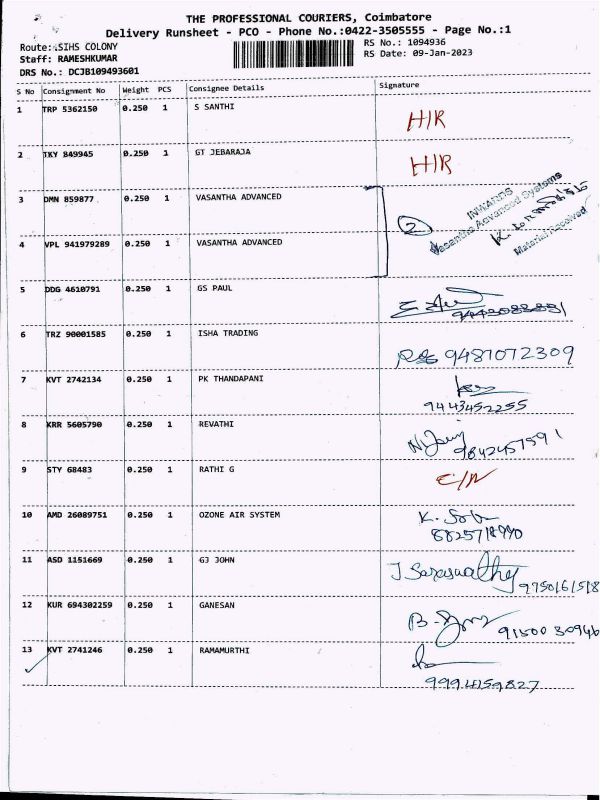 THE PROFESSIONAL COURIERS, Coimbatore
Delivery Runsheet - PCO - Phone No.:0422-3505555 - Page No.:1
Route: SIHS COLONY
RS No.: 1094936
Staff: RAMESHKUMAR
RS Date: 09-Jan-2023
DRS No.: DCJB109493601
S No Consignment No Weight PCS Consignee Details Signature
1 TRP 5362150 0.250 1 S SANTHI H/R
2 TKY 849945 0.250 1 GT JEBARAJA H/R
3 DMN 859877 0.250 1 VASANTHA ADVANCED
INWARDS
Vasantha Advanced Systems
2
Material Received
4 VPL 941979289 0.250 1 VASANTHA ADVANCED
5 DDG 4610791 0.250 1 GS PAUL
6 TRZ 90001585 0.250 1 ISHA TRADING 9487072309
7 KVT 2742134 0.250 1 PK THANDAPANI
9443452255
8 KRR 5605790 0.250 1 REVATHI
9842457591
9 STY 68483 0.250 1 RATHI G
10 AMD 26089751 0.250 1 OZONE AIR SYSTEM
11 ASD 1151669 0.250 1 GJ JOHN J Saraswathy
9750161518
12 KUR 694302259 0.250 1 GANESAN
13 KVT 2741246 0.250 1 RAMAMURTHI
9994159827